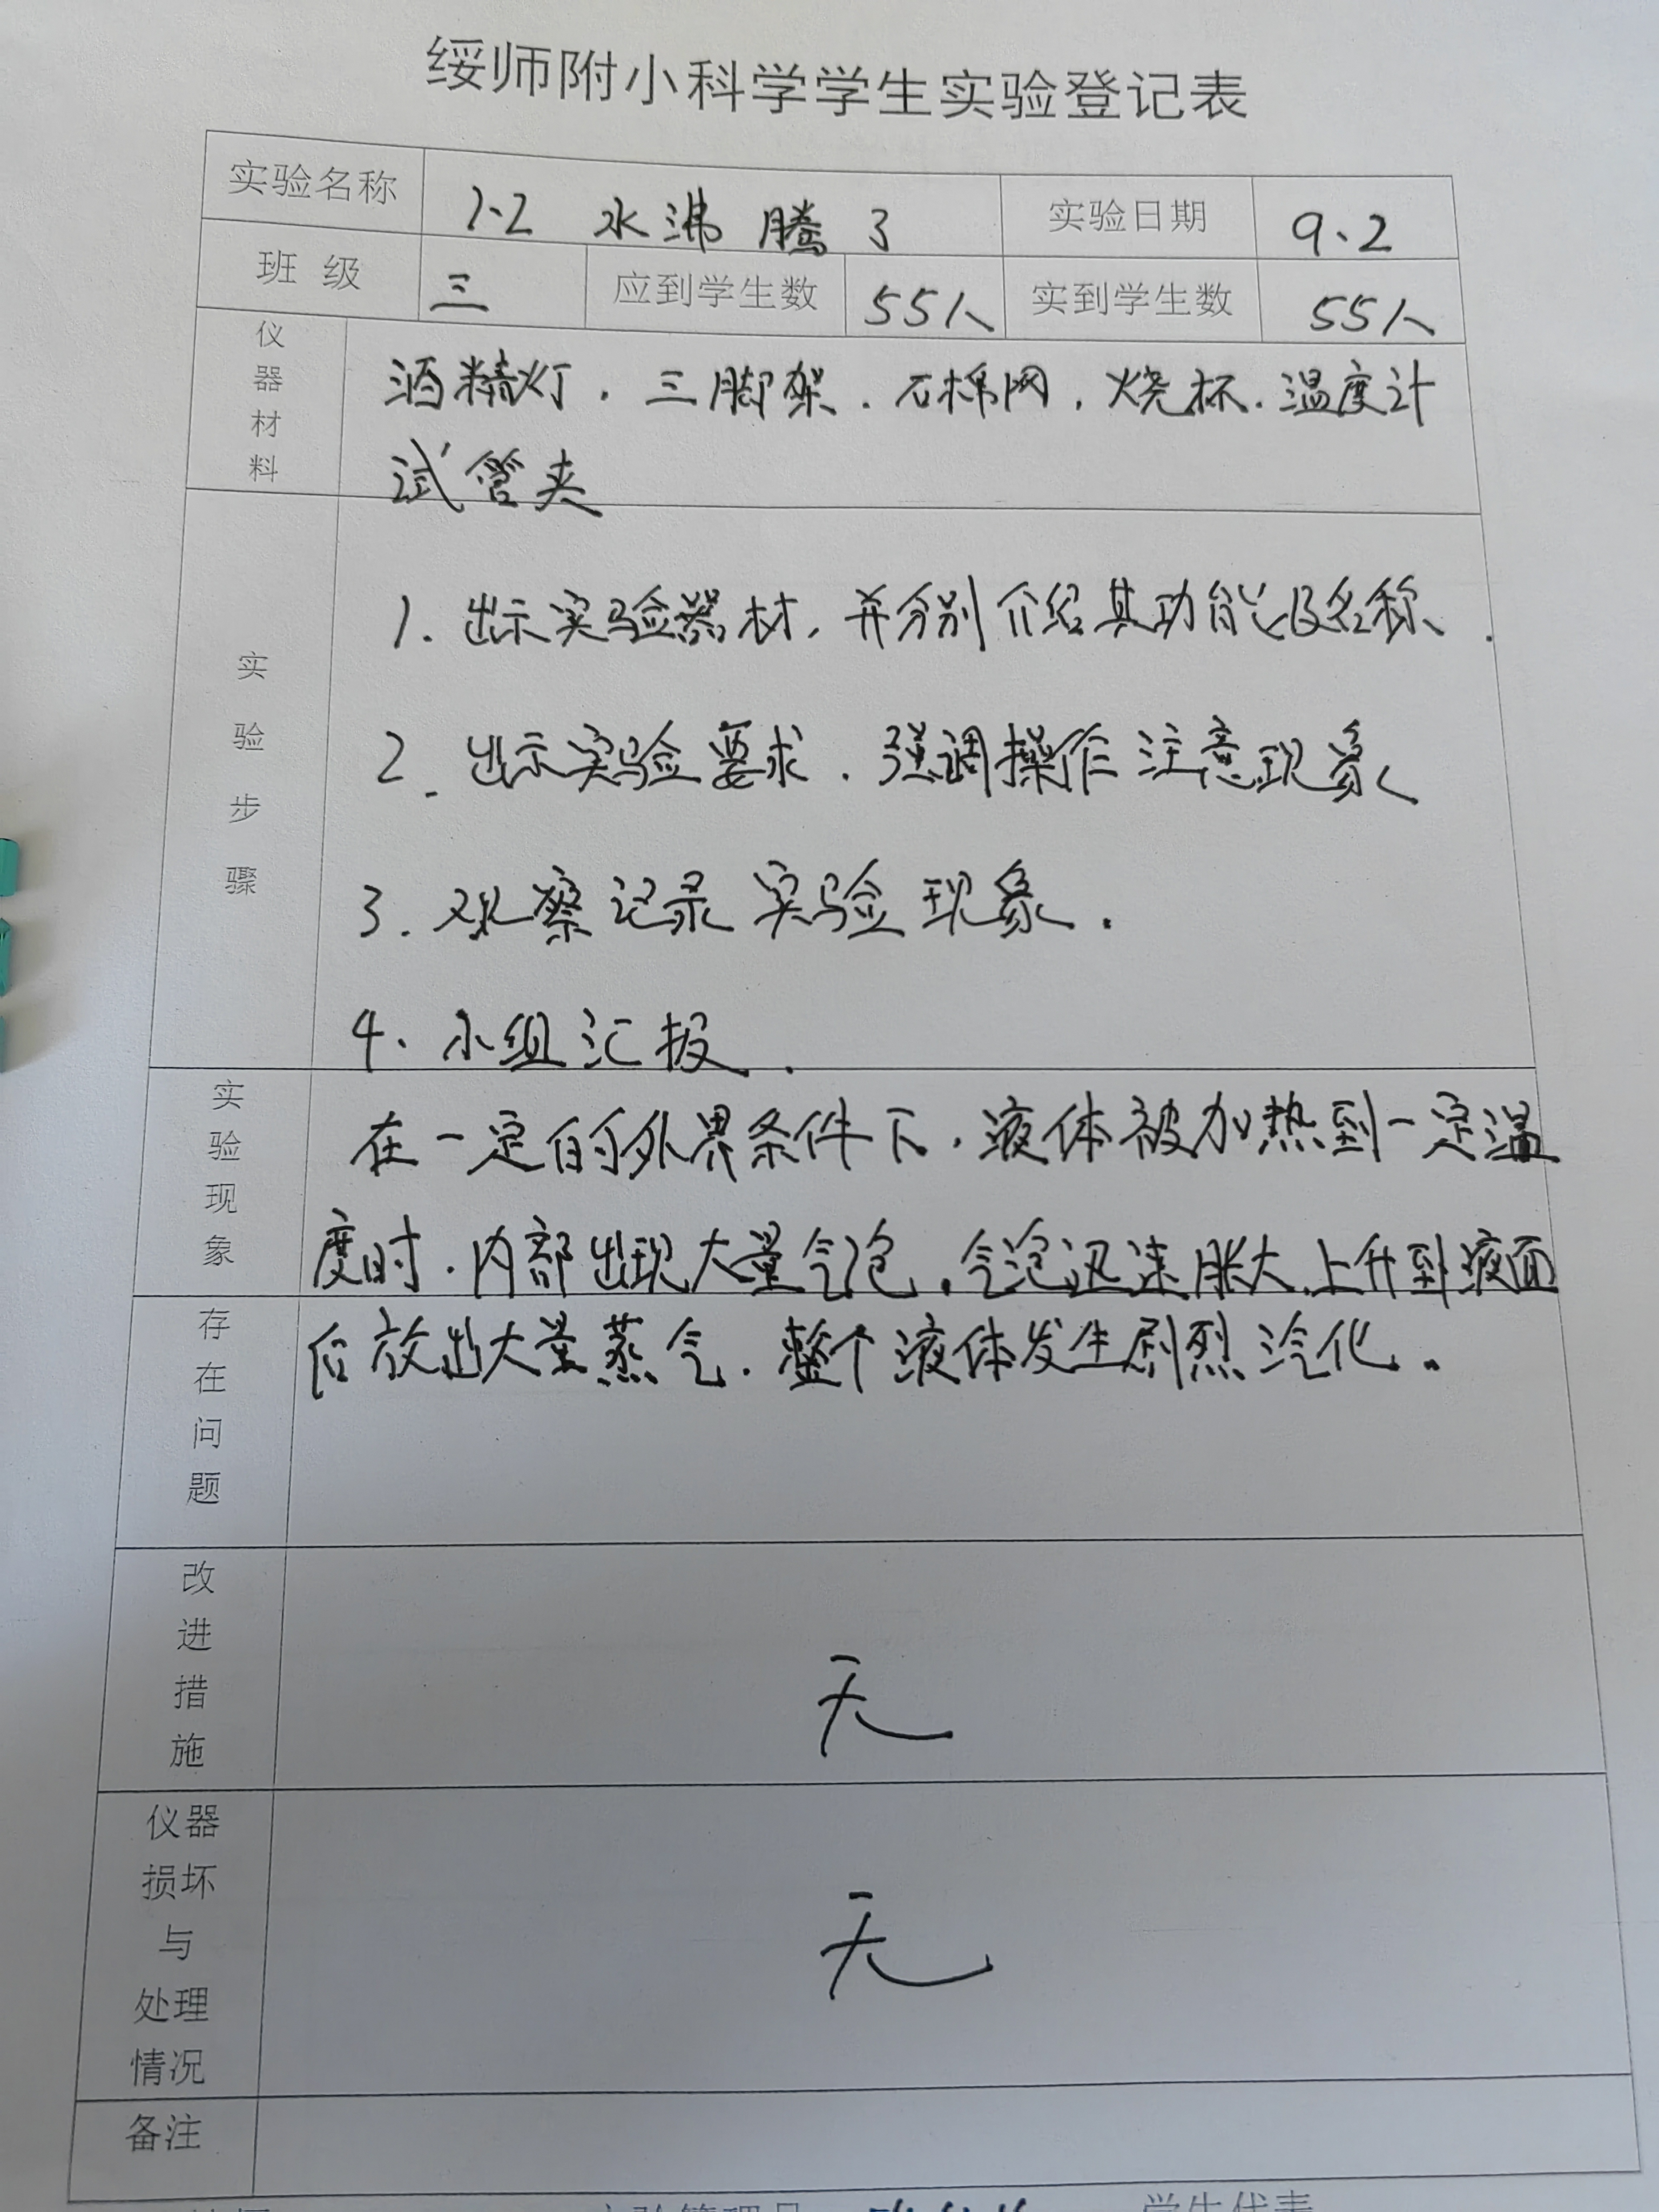 绥师附小科学学生实验登记表
实验名称 1.2 水沸腾了 实验日期 9.2
班 级 三 应到学生数 55人 实到学生数 55人
仪器材料
酒精灯.三脚架.石棉网,烧杯.温度计
试管夹
实验步骤
1. 出示实验器材,并分别介绍其功能及名称.
2. 出示实验要求.强调操作注意现象
3. 观察记录实验现象.
4. 小组汇报.
实验现象
在一定的外界条件下,液体被加热到一定温
度时.内部出现大量气泡.气泡迅速胀大.上升到液面
后放出大量蒸气.整个液体发生剧烈汽化.
存在问题
改进措施
无
仪器
损坏
与
处理
情况
无
备注
学生代表